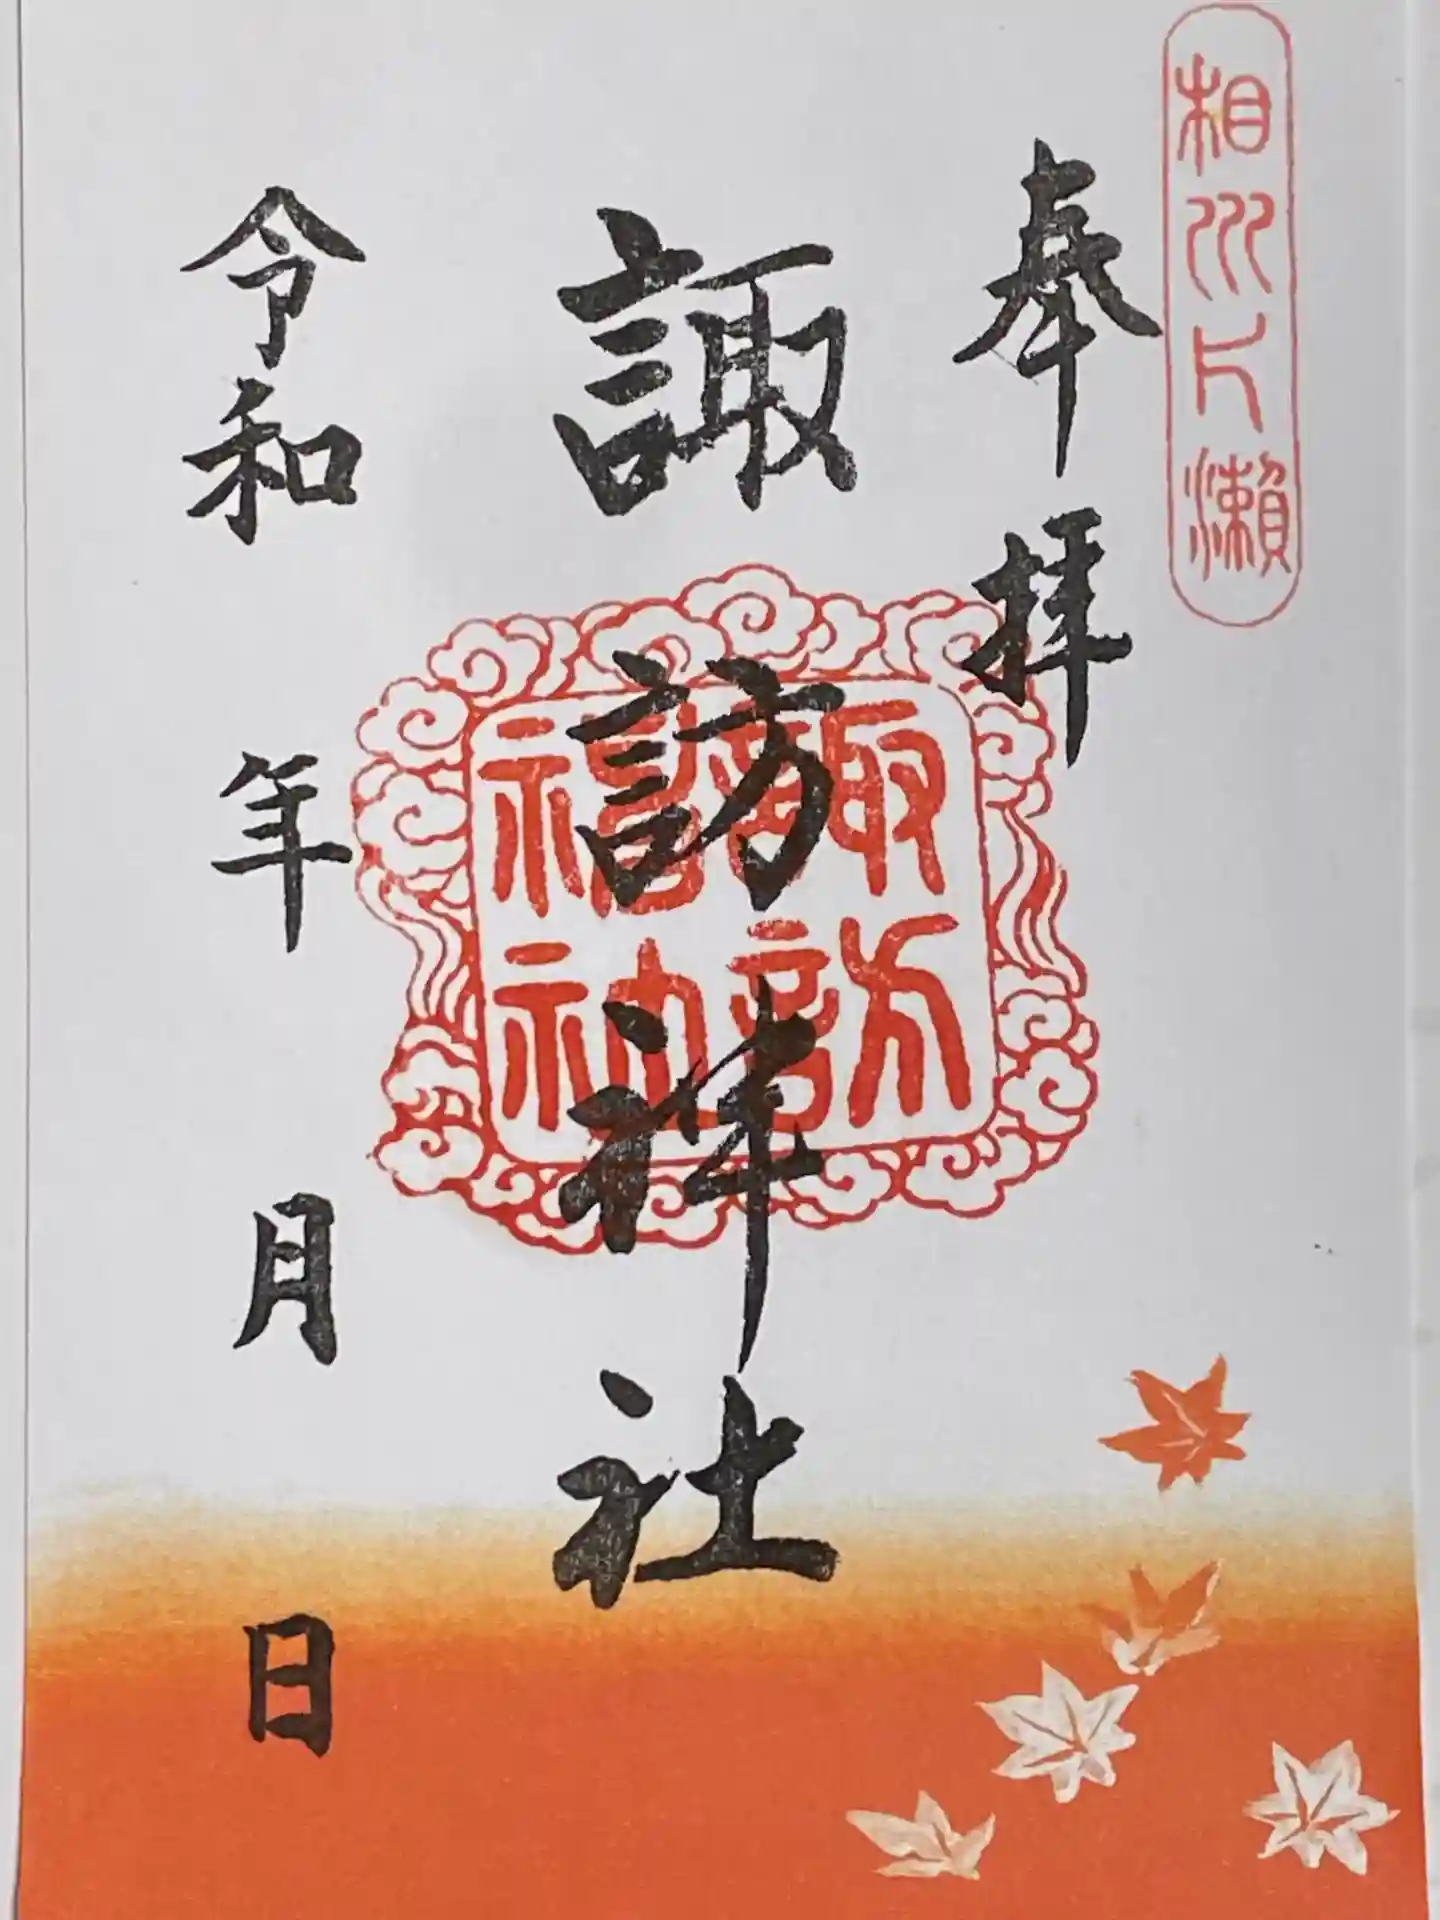 相州片瀨
奉拝
諏訪神社
諏訪
福神
令和 年 月 日